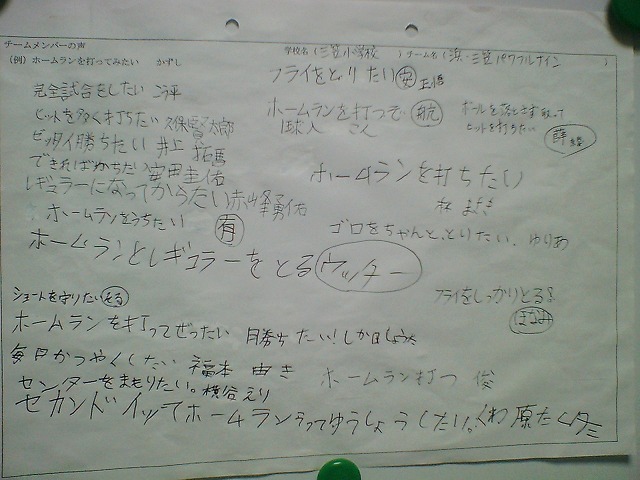 チームメンバーの声
(例)ホームランを打ってみたい かずし
学校名(三笠小学校 )チーム名(浜・三笠パワフルナイン )
フライをとりたい
完全試合をしたい
ホームランを打つぞ
ボールを落とさず
ヒットを打ちたい
ヒットを多く打ちたい
ゼッタイ勝ちたい 井上 拓馬
できればかちたい 安田圭佑
レギュラーになってかちたい 赤峰勇佑
ホームランを打ちたい
ホームランをうちたい 有
ゴロをちゃんと、とりたい、ゆりあ
ホームランとレギュラーをとる
フライをしっかりとる!
ほなみ
ショートを守りたい
ホームランを打ってぜったい 勝ちたい!
毎日かつやくしたい 福本 由き
ホームラン打つ 俊
センターをまもりたい。横谷えり
セカンドイッてホームランうってゆうしょうしたい。